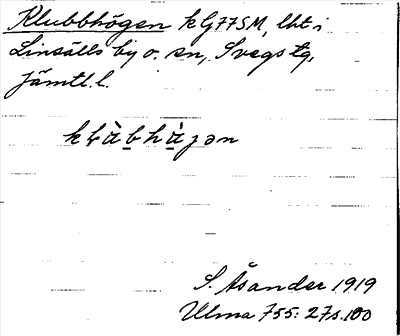 Klubbhögen k G77SM, lht i
Linsälls by o. sn, Svegs tg,
Jämtl. l.
kḷàbhàgən
S. Åsander 1919
Ulma 755: 27 s. 100